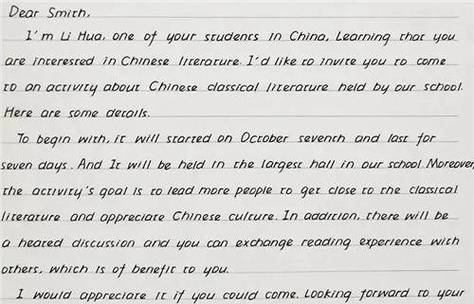 Dear Smith,
I'm Li Hua, one of your students in China, Learning that you
are interested in Chinese literature. I'd like to invite you to come
to an activity about Chinese classical literature held by our school.
Here are some details.
To begin with, it will started on October seventh and last for
seven days. And It will be held in the largest hall in our school Moreover,
the activity's goal is to lead more people to get close to the classical
literature and appreciate Chinese culture. In addition, there will be
a heated discussion and you can exchange reading experience with
others, which is of benefit to you.
I would appreciate it if you could come. Looking forward to your